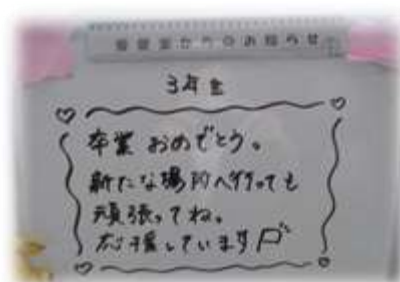 保健室からのお知らせ
3年生
卒業おめでとう。
新たな場所へ行っても
頑張ってね。
応援しています